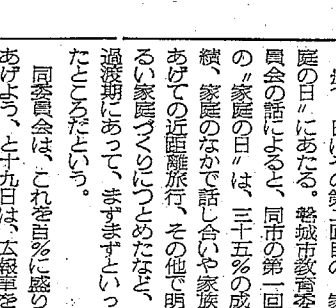 日はその第二回目の
庭の日〃にあたる。磐城市教育委
員会の話によると、同市の第一回
の〃家庭の日〃は、三十五%の成
績、家庭のなかで話し合いや家族
あげての近距離旅行、その他で明
るい家庭づくりにつとめたなど、
過渡期にあって、まずまずといっ
たところだという。
同委員会は、これを百%に盛り
あげよう、と十九日は、広報車を